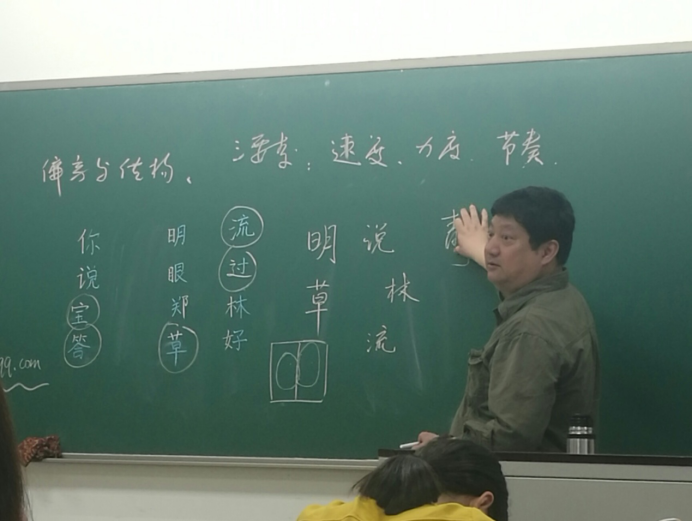 三要素：速度、力度、节奏
偏旁与结构、
你 明 流
说 眼 过
宝 郑 林
答 草 好
明 说
草 林
流
qq.com